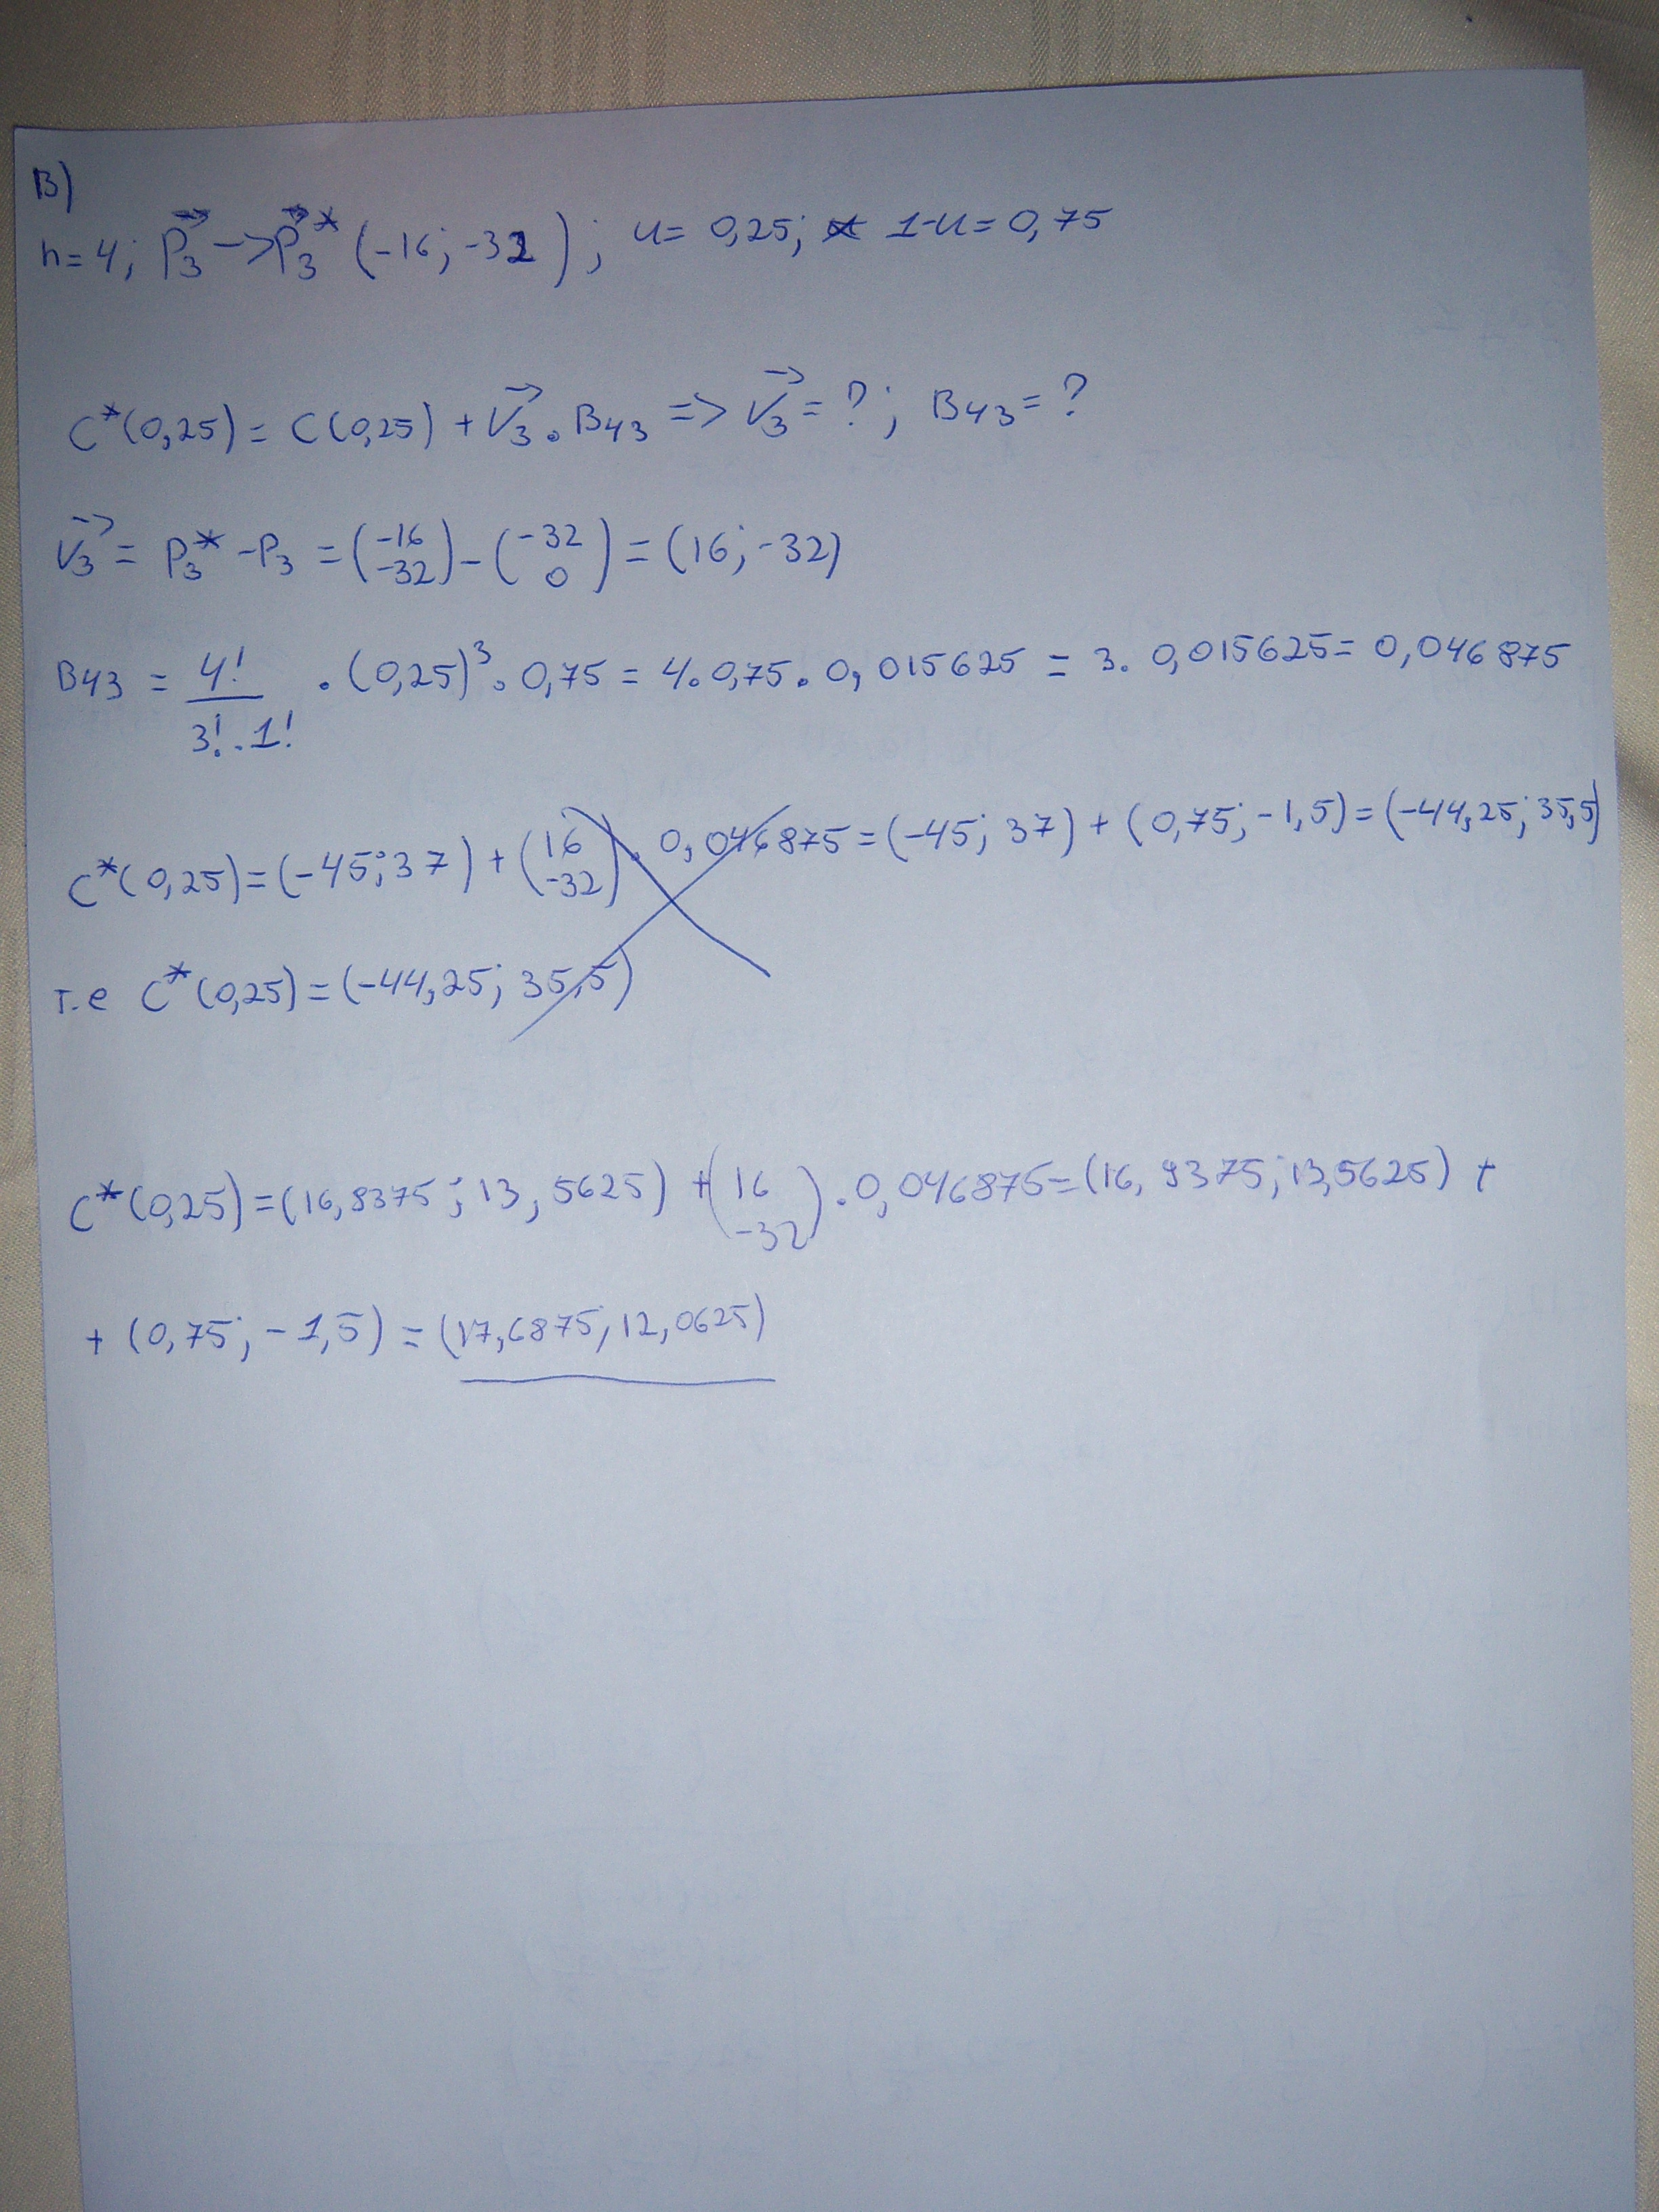 В)
n=4; P₃→P₃* (-16; -32); u= 0,25; 1-u=0,75
C*(0,25)= C(0,25) + V₃ . B₄₃ => V₃ = ?; B₄₃= ?
V₃ = P₃* -P₃ = (-16 -32) - (-32 0) = (16; -32)
B₄₃ = 4!/3!.1! . (0,25)³. 0,75 = 4.0,75. 0,015625 = 3. 0,015625= 0,046875
C*(0,25)=(-45;37) + (16 -32). 0,046875=(-45; 37) + (0,75; -1,5)=(-44,25; 35,5)
т.е C*(0,25)=(-44,25; 35,5)
C*(0,25)=(16,9375; 13,5625) + (16 -32).0,046875=(16,9375; 13,5625) +
+ (0,75; -1,5) = (17,6875; 12,0625)